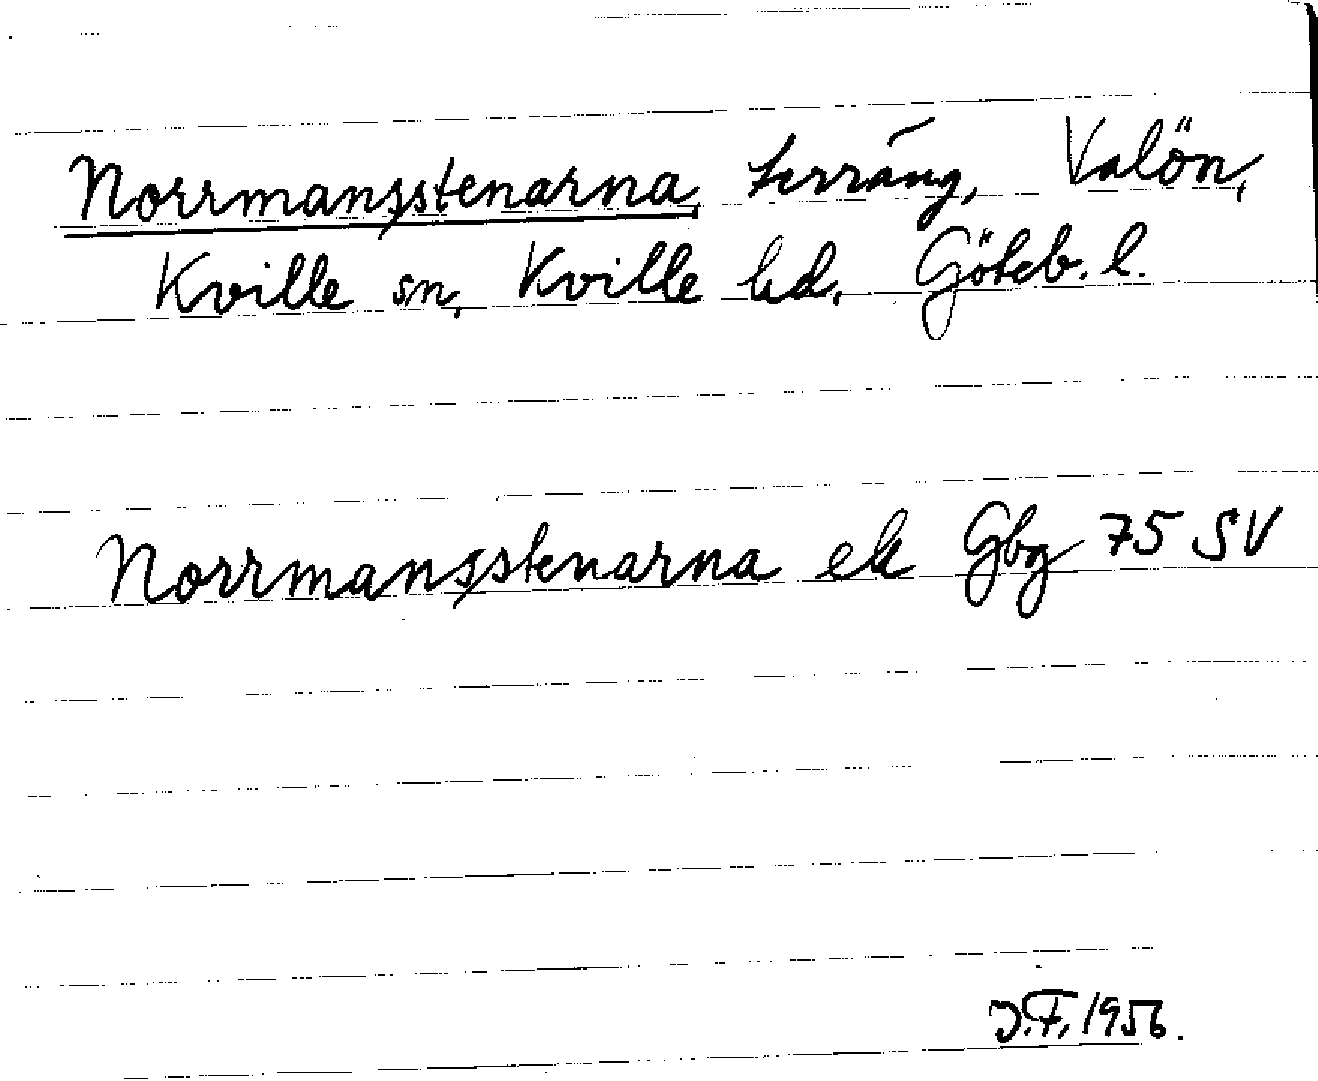 Norrmansstenarna, terräng, Valön,
Kville sn, Kville hd. Göteb. l.
Norrmansstenarna ek Gbg 75 SV
J.F. 1956.